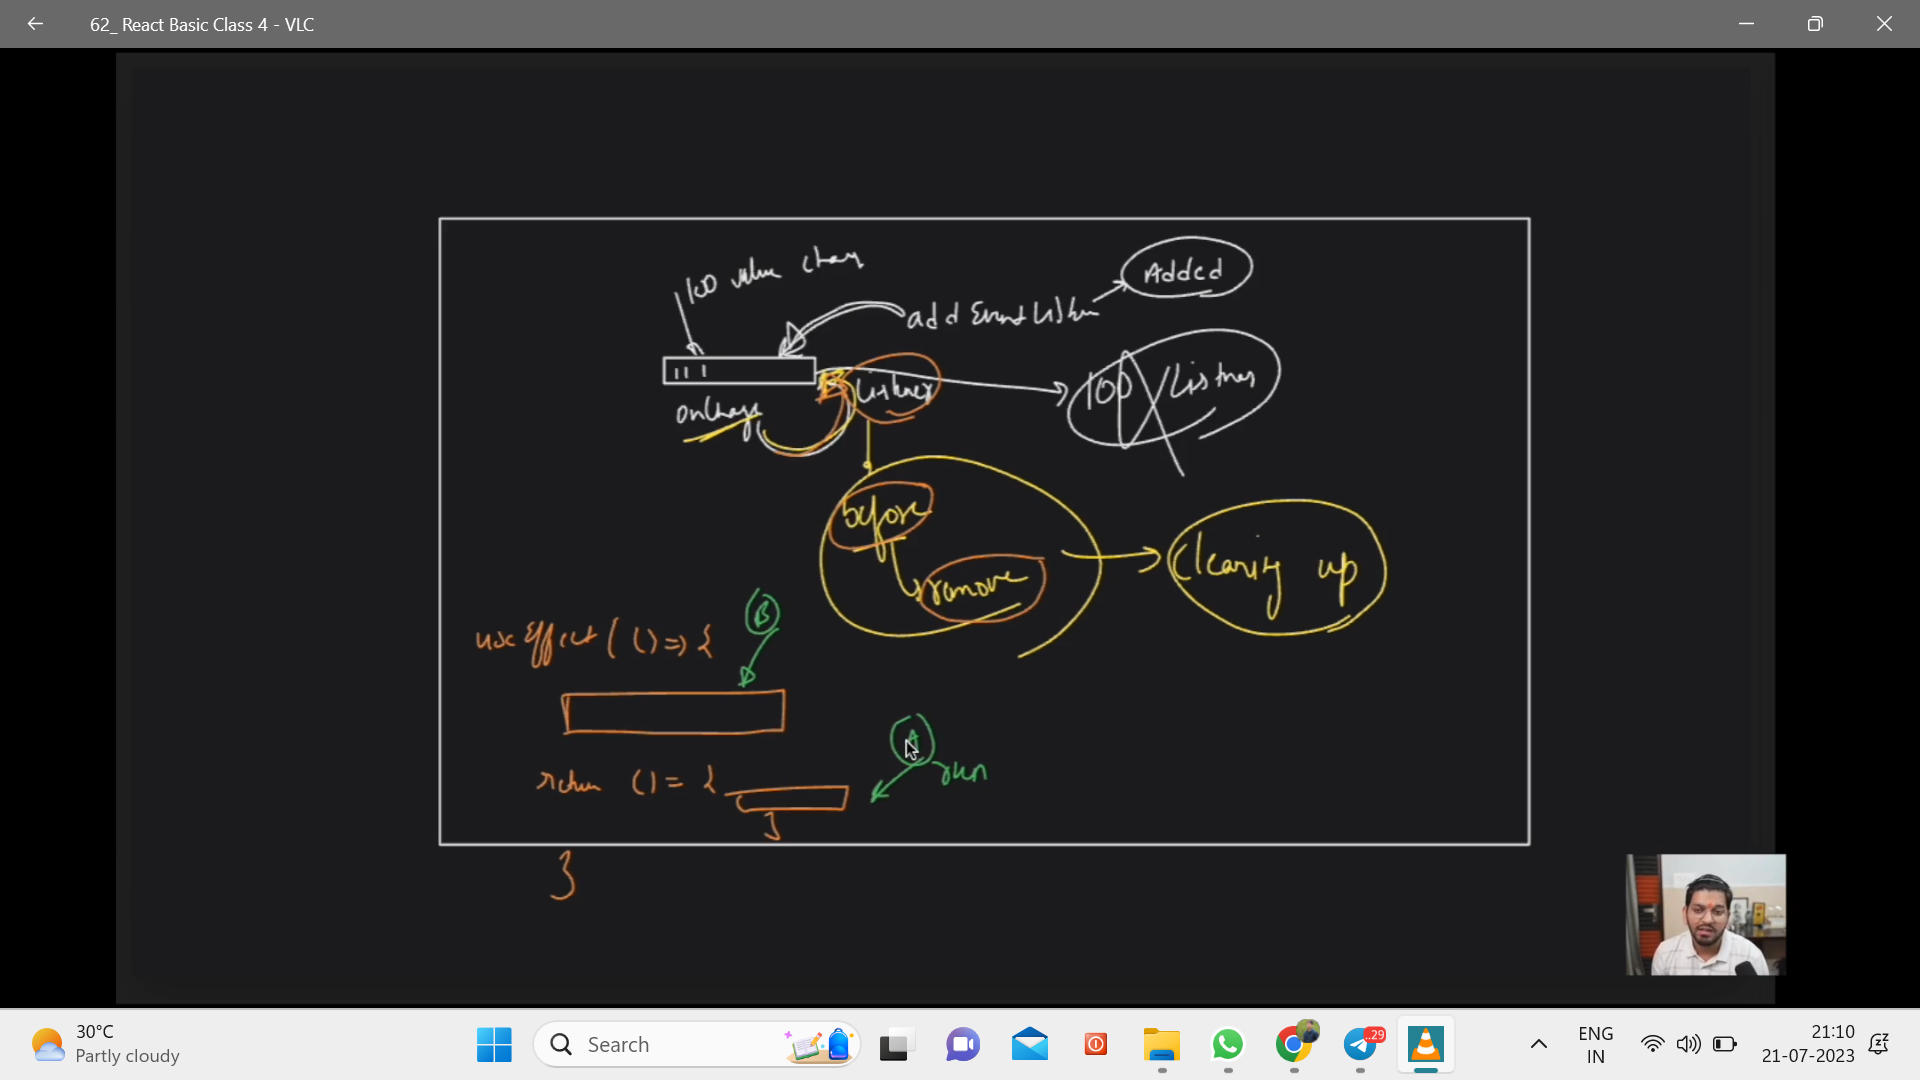 62_ React Basic Class 4 - VLC
100 value chang
Added
add Event Listner
Listner
100 Listner
onChange
before
remove
cleaning up
B
useEffect ( () => {
A
run
return () = {
}
}
30°C
Partly cloudy
Search
29
ENG
IN
21:10
21-07-2023